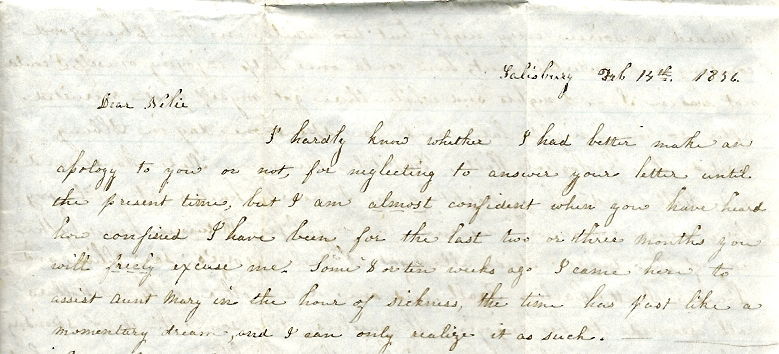 Salisbury Feb 14th. 1836.
Dear Nelie
I hardly know whether I had better make an
apology to you or not, for neglecting to answer your letter until
the present time, but I am almost confident when you have heard
how confined I have been for the last two or three months you
will freely excuse me. Some 8 or ten weeks ago I came here to
assist Aunt Mary in the hour of sickness, the time has past like a
momentary dream, and I can only realize it as such.